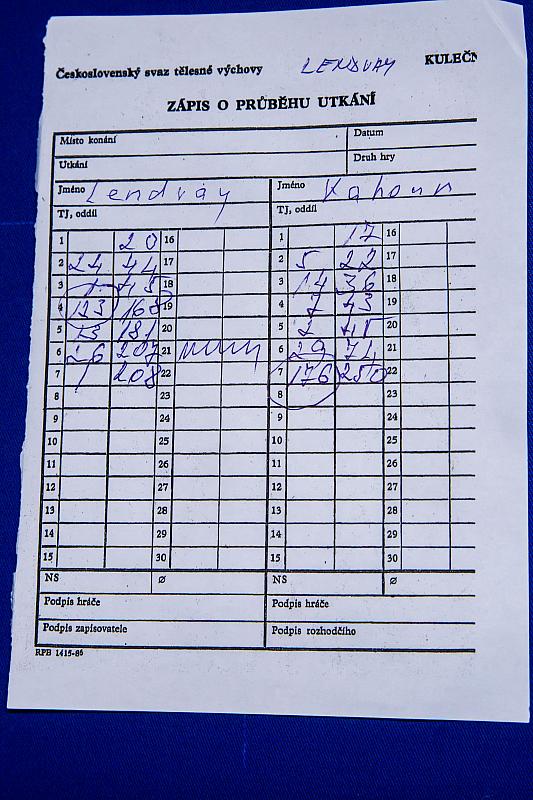 Československý svaz tělesné výchovy LENDVAY KULEČN
ZÁPIS O PRŮBĚHU UTKÁNÍ
Místo konání Datum
Utkání Druh hry
Jméno Lendvay Jméno Kahoun
TJ, oddíl TJ, oddíl
1 20 16 1 17 16
2 24 44 17 2 5 22 17
3 1 45 18 3 14 36 18
4 123 168 19 4 7 43 19
5 13 181 20 5 2 45 20
6 26 207 21 6 29 74 21
7 1 208 22 7 176 250 22
8 23 8 23
9 24 9 24
10 25 10 25
11 26 11 26
12 27 12 27
13 28 13 28
14 29 14 29
15 30 15 30
NS ø NS ø
Podpis hráče Podpis hráče
Podpis zapisovatele Podpis rozhodčího
RPB 1415-86